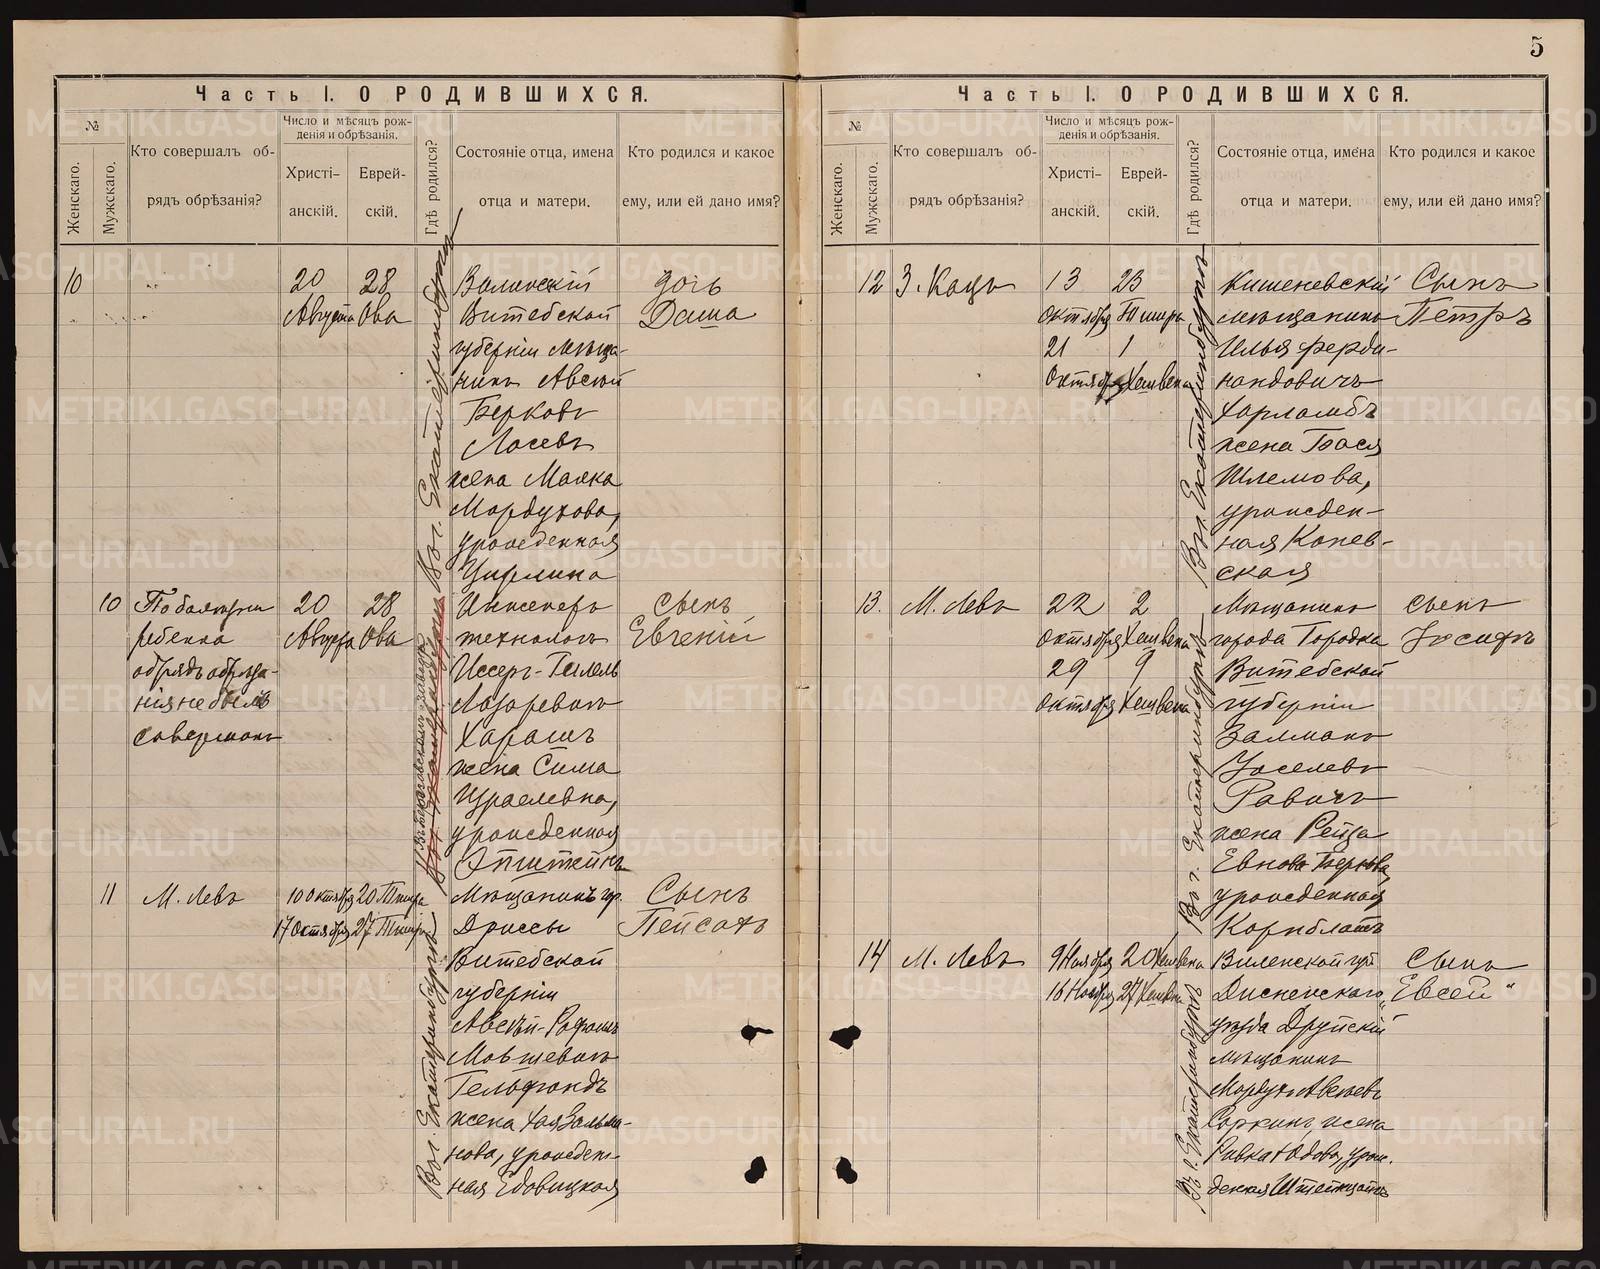 5
Часть I. О РОДИВШИХСЯ.
№
Женскаго.
Мужскаго.
Кто совершалъ об-
рядъ обрѣзанія?
Число и мѣсяцъ рож-
денія и обрѣзанія.
Христі-
анскій.
Еврей-
скій.
Гдѣ родился?
Состояніе отца, имена
отца и матери.
Кто родился и какое
ему, или ей дано имя?
10
20
Августа
28
Ова
Въ г. Екатеринбургѣ
Витебской
губерніи мѣща-
нинъ
Берковъ
Лосевъ
жена
Мордухова,
урожденная
Цирлина
дочь
Даша
10
По болѣзни
ребенка
обрядъ обрѣза-
нія не былъ
совершонъ
20
Августа
28
Ова
Инженеръ
технологъ
Лазаревичъ
Харашъ
жена Сима
Израелевна,
урожденная
Эпштейнъ
Сынъ
Евгеній
11
М. Левъ
10 Октября 20 Тишри
17 Октября 27 Тишри
Въ г. Екатеринбургѣ
Мѣщанинъ гор.
Дриссы
Витебской
губерніи
Мовшевичъ
Гельфандъ
жена Хая Зальма-
нова, урожден-
ная
Сынъ
Пейсахъ
Часть I. О РОДИВШИХСЯ.
№
Женскаго.
Мужскаго.
Кто совершалъ об-
рядъ обрѣзанія?
Число и мѣсяцъ рож-
денія и обрѣзанія.
Христі-
анскій.
Еврей-
скій.
Гдѣ родился?
Состояніе отца, имена
отца и матери.
Кто родился и какое
ему, или ей дано имя?
12
З. Кацъ
13
Октября
21
Октября
23
Тишри
1
Хешвена
Въ г. Екатеринбургѣ
Кишеневскій
мѣщанинъ
Илья Ферди-
нандовичъ
Харламбъ
жена Бася
Шлемова,
урожден-
ная Каnев-
ская
Сынъ
Петръ
13.
М. Левъ
22
Октября
29
Октября
2
Хешвена
9
Хешвена
Въ г. Екатеринбургѣ
Мѣщанинъ
города Городка
Витебской
губерніи
Залманъ
Іоселевъ
Рабичъ
жена Рейза
урожденная
Корнблатъ
Сынъ
Іосифъ
14
М. Левъ
9 Ноября 20 Хешвена
16 Ноября 27 Хешвена
Въ г. Екатеринбургѣ
Виленской губ
Дисненскаго
уѣзда Друйскій
мѣщанинъ
жена
Ривка Юдова, урож.
денная
Сынъ
„Евсей“
METRIKI.GASO-URAL.RU